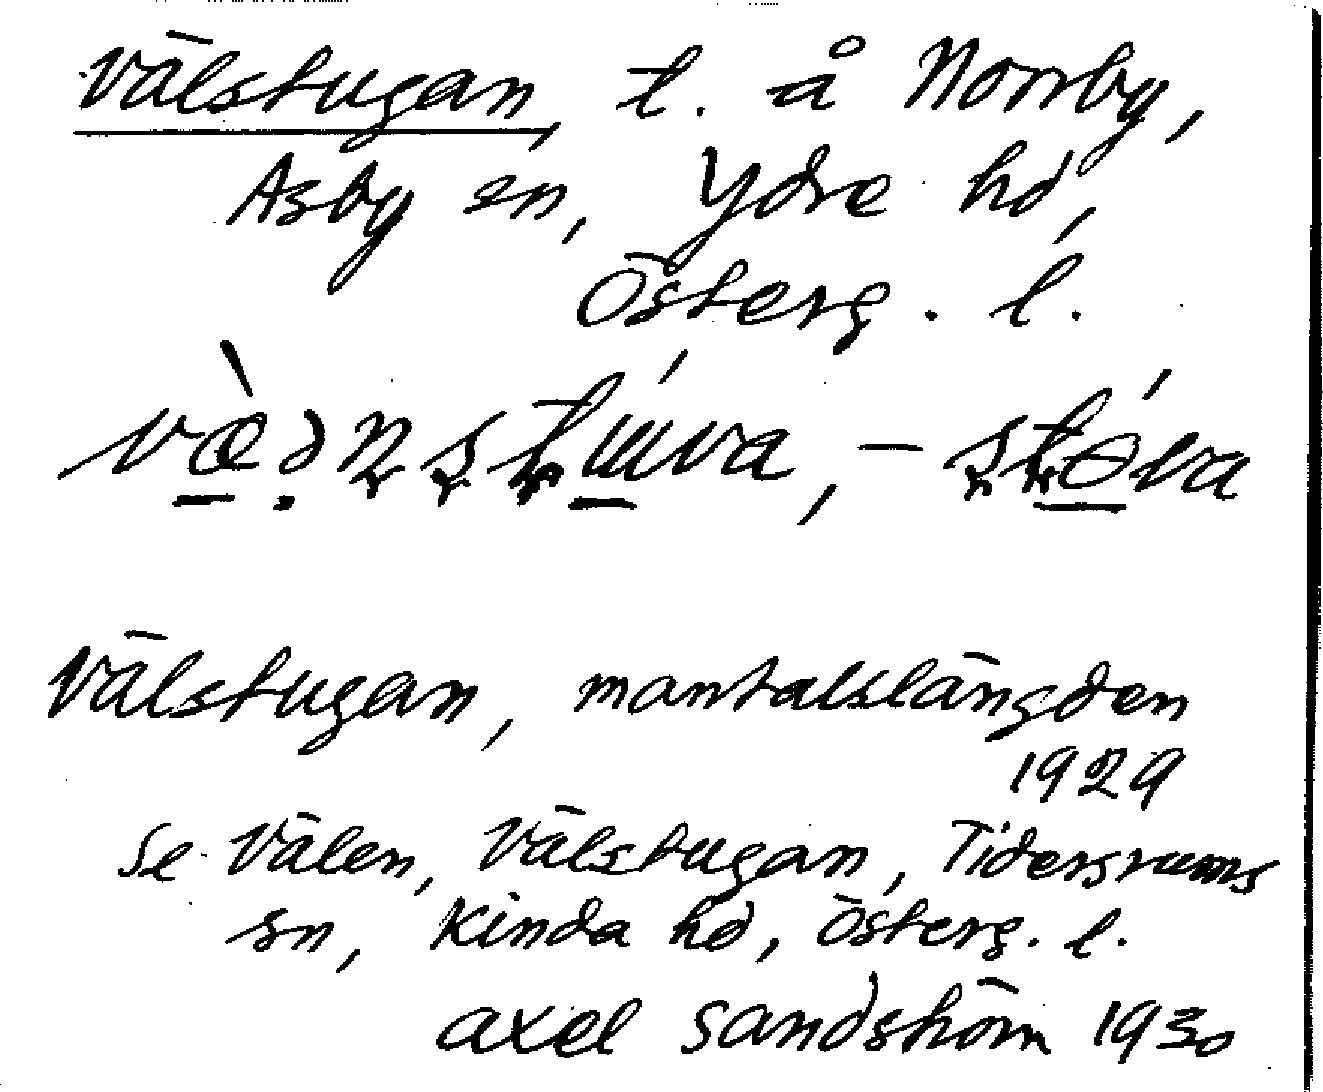 Välstugan, t. å Norrby,
Asby sn, Ydre hd,
Österg. l.
Välstugan, mantalslängden
1929
Se Välen, Välstugan, Tidersrums
sn, Kinda hd, Österg. l.
Axel Sandström 1930